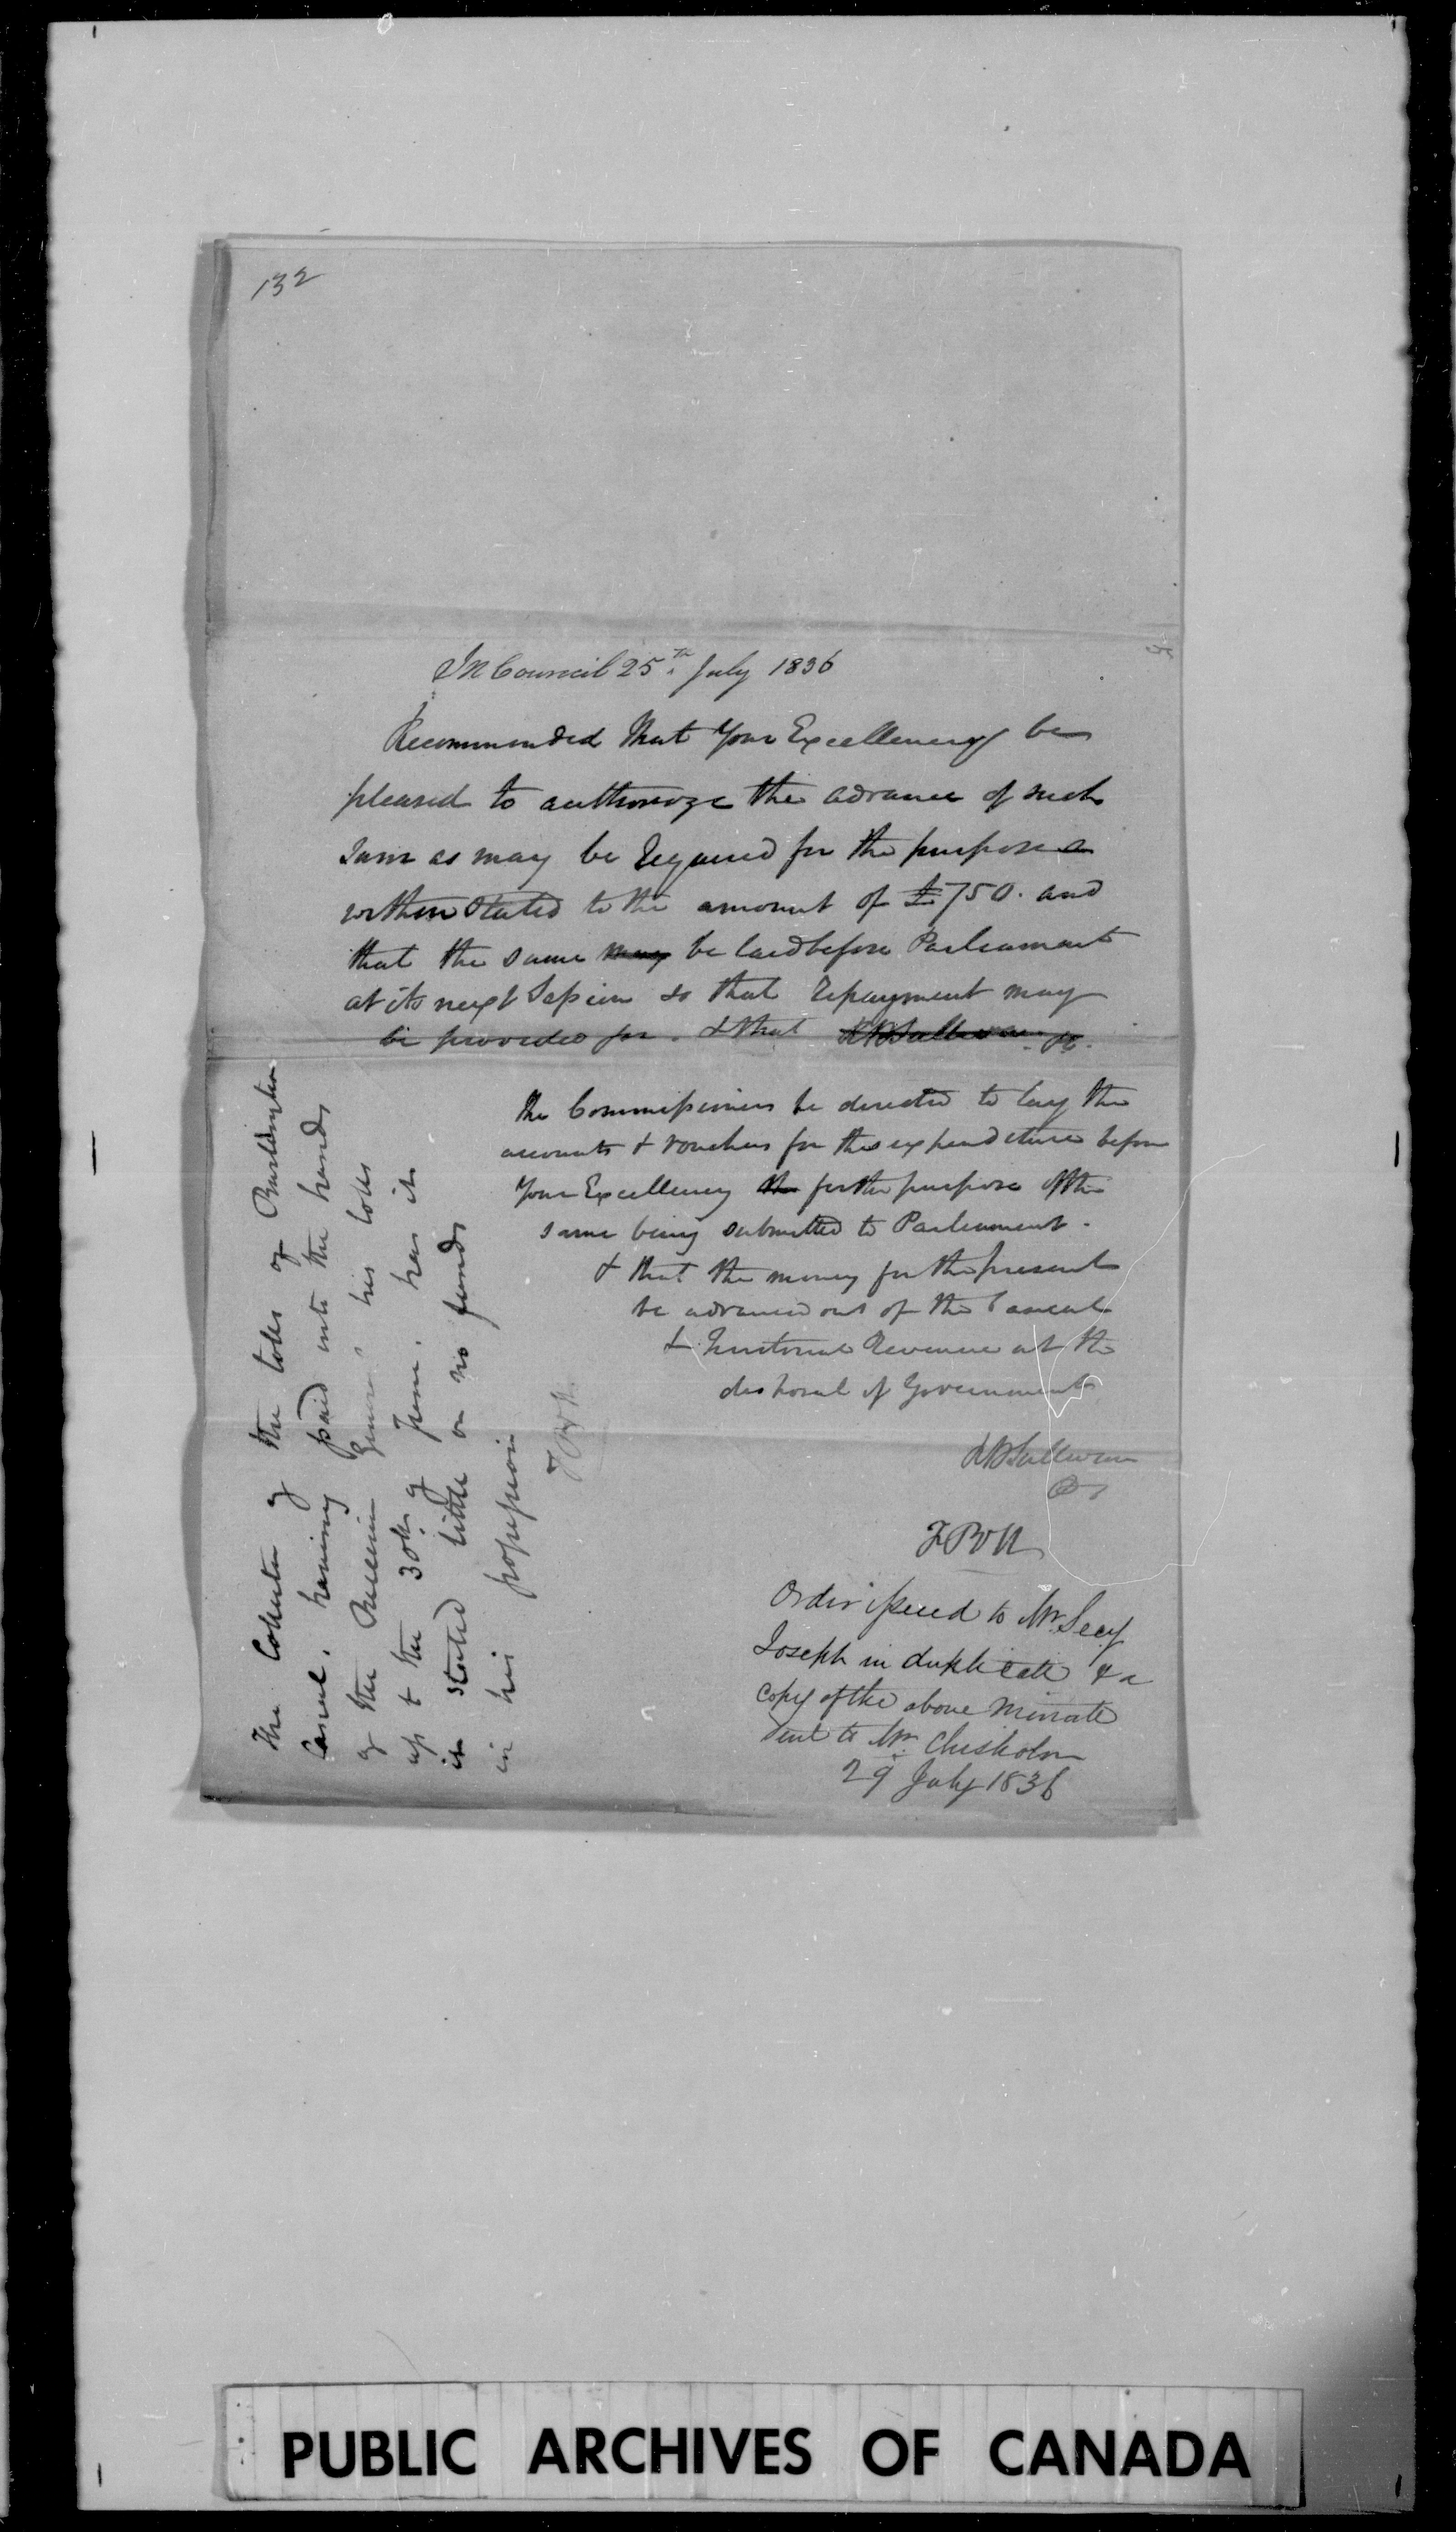 132
In Council 25th July 1836
Recommended that Your Excellency be
pleased to authorize the advance of such
sum as may be required for the purposes
within stated to the amount of £750. and
that the same may be laid before Parliament
at its next Session so that repayment may
be provided for. & that RBSullivan PC.
the Commissioners be directed to lay the
accounts & vouchers for the expenditure before
Your Excellency the for the purpose of the
same being submitted to Parliament.
& that the money for the present
be advanced out of the Casual
& Territorial Revenue at the
disposal of Government
RBSullivan
FBH
Order issued to Mr. Secy
Joseph in duplicate & a
copy of the above Minute
sent to Mr. Chisholm
29 July 1836
The Collector of the tolls of Burlington
Canal, having paid into the hands
of the Receiver General, his tolls
up to the 30th of June, has it
is stated little or no funds
in his possession
FBH.
PUBLIC ARCHIVES OF CANADA